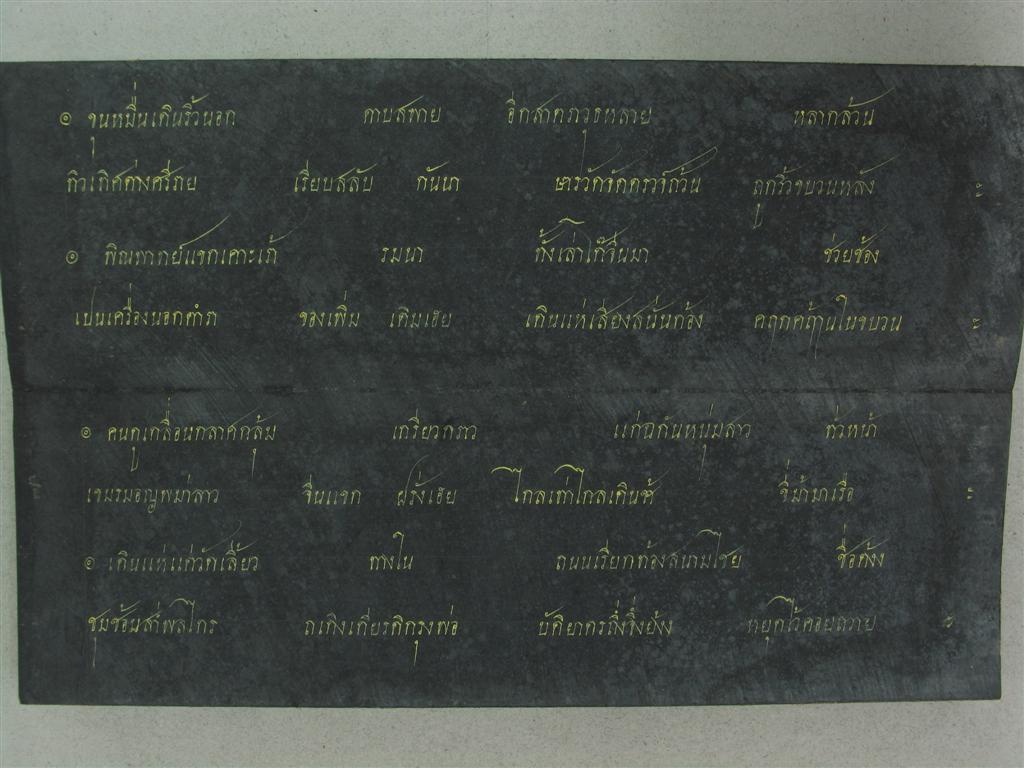 ๏ ขุนหมื่นเดินริ้วนอก ดาบสพาย อีกสาตราวุธหลาย หลากล้วน
ทิวเทิศต่างศรีกาย เรียบสลับ กันนา ถูกริ้วขบวนหลัง ฯะ
๏ พิณพาทย์แขกเคาะเถ้า รมนา ทั้งเล่าโก๊จีนมา ช่วยซ้อง
เปนเครื่องนอกตำรา ของเพิ่ม เติมเฮย เดินแห่เสียงสนั่นก้อง คฤกคฤๅนในขบวน ฯะ
๏ คนดูเกลื่อนกลาศกลุ้ม เกรียวกราว แก่ฉกันหนุ่มสาว ทั่วหน้า
เขมรมอญพม่าลาว จีนแขก ฝรั่งเฮย ไกลเท่าไกลเดินช้ ขี่ม้ามาเรือ ฯะ
๏ เดินแห่แต่วัดเลี้ยว ทางใน ถนนเรียกท้องสนามไชย ชื่อตั้งง
ชุมช้อนส่ำพลไกร ถเกิงเกียรติกรุงพ่อ บัดิยาครถึ่งรั้งยั้งง หยุดไว้คอยถวาย ฯะ